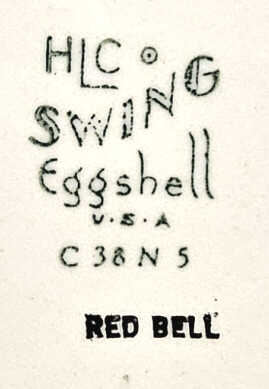 HLC
SWING
Eggshell
U.S.A
C 38 N 5
RED BELL